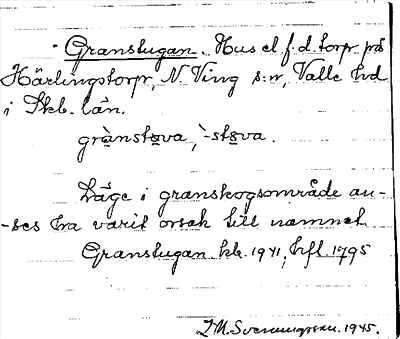 Granstugan. Hus el. f.d. torp på
Härlingstorp, N. Ving s:n, Valle hd
i Skb. län.
grànstøva, `-støva.
Läge i granskogsområde an-
-ses ha varit orsak till namnet
Granstugan kb. 1941, hfl. 1795
I.M. Svenningsson. 1945.